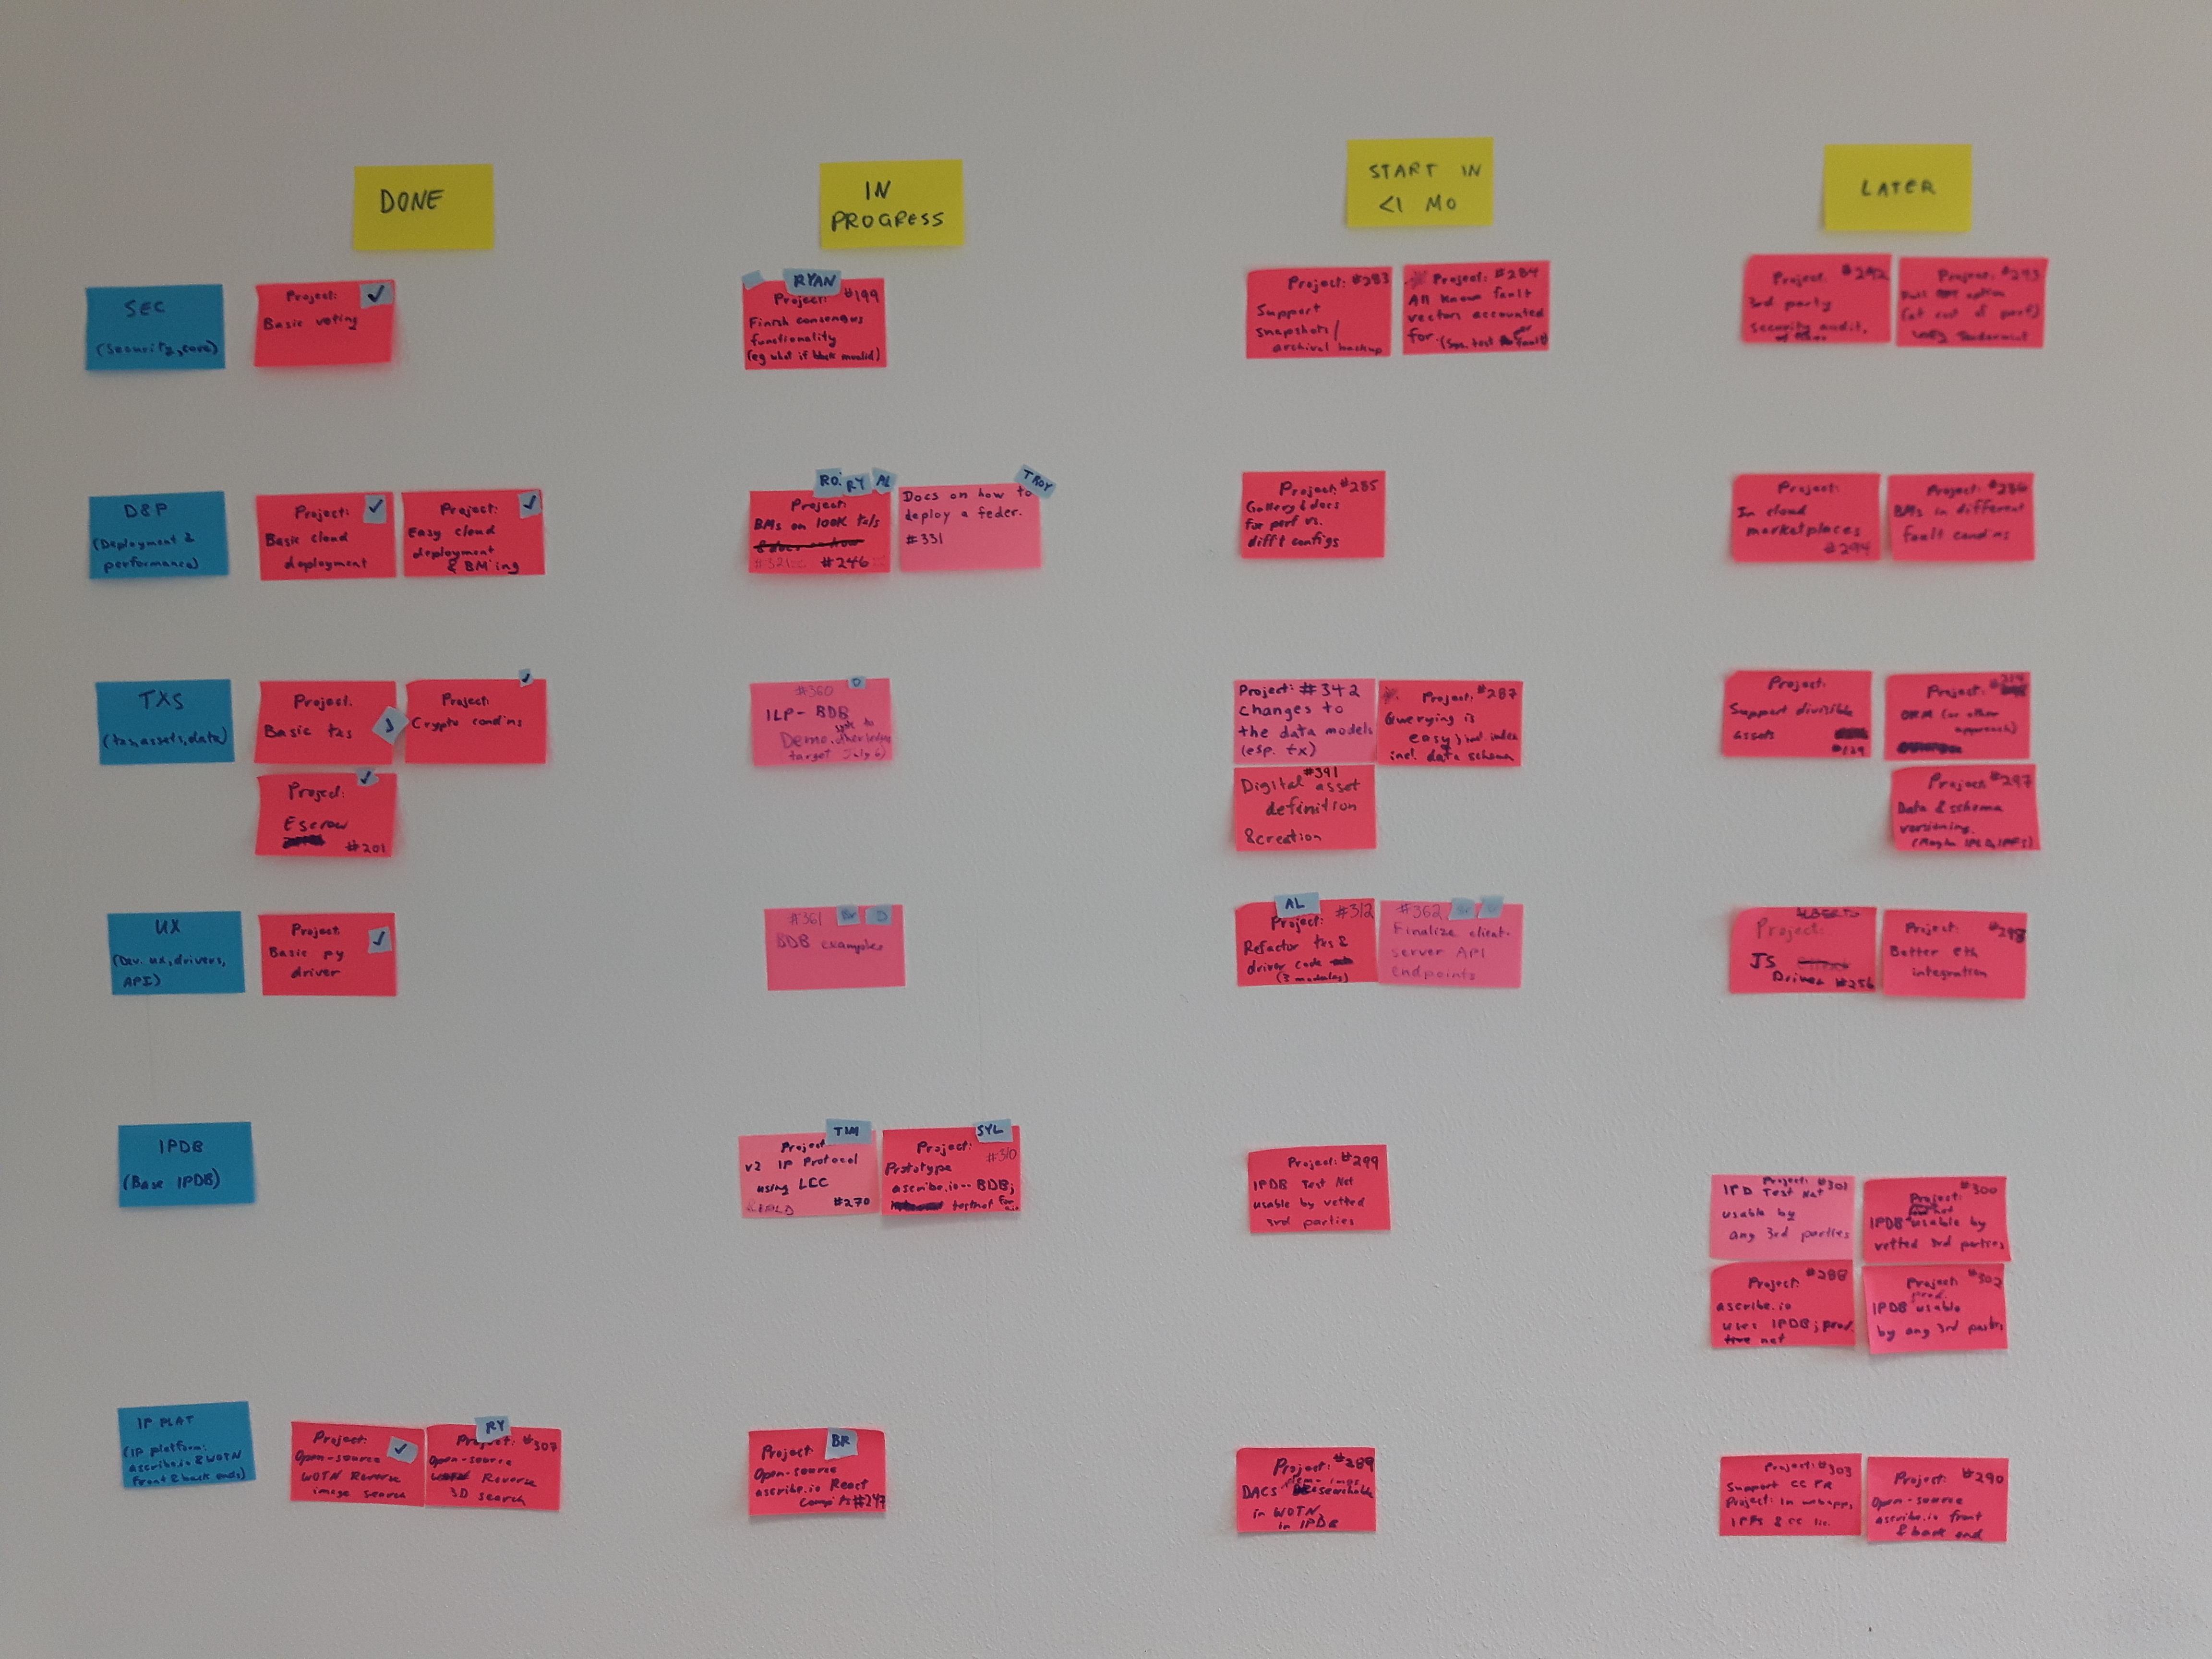 DONE
IN
PROGRESS
START IN
<1 MO
LATER
SEC
(security, core)
Project:
Basic voting
RYAN
Project: #199
Finish consensus
functionality
(eg what if block invalid)
Project: #283
Support
snapshots/
archival backup
Project: #284
All known fault
vectors accounted
for (Sys. test
Project: #292
3rd party
security audit,
Project: #293
option
(at cost of perf)
Tendermint
D&P
(Deployment &
performance)
Project:
Basic cloud
deployment
Project:
Easy cloud
deployment
& BM'ing
RO. RY AL
Project:
BMs on 100K txs/s
#321 #246
TROY
Docs on how to
deploy a feder.
#331
Project: #285
Gallery & docs
for perf vs.
diff't configs
Project:
In cloud
marketplaces
#294
Project: #286
BMs in different
fault cond'ns
TXS
(txs, assets, data)
Project.
Basic txs
Project:
Crypto cond'ns
Project:
Escrow
#201
#360 D
ILP-BDB
Demo.
target July 6)
Project: #342
changes to
the data models
(esp. tx)
Project: #287
Querying is
easy; incl index
incl. data schema
#391
Digital asset
definition
& creation
Project:
Support divisible
assets
#129
Project:
ORM (or other
approach)
Project #297
Data & schema
versioning.
(Maybe IPLD, IPFS)
UX
(Dev. ux, drivers,
API)
Project:
Basic py
driver
#361 Br D
BDB examples
AL
Project: #312
Refactor txs &
driver code
(3 modules)
#362 Br D
Finalize client-
server API
endpoints
ALBERTO
Project:
JS
Driver #256
Project: #298
Better eth
integration
IPDB
(Base IPDB)
TIM
Project
v2 IP Protocol
using LCC
#270
SYL
Project: #310
Prototype
ascribe.io -- BDB;
testnet for
Project: #299
IPDB Test Net
usable by vetted
3rd parties
Project: #301
IPD Test Net
usable by
any 3rd parties
#300
Project:
IPDB usable by
vetted 3rd parties
Project: #288
ascribe.io
uses IPDB; prod.
net
Project: #302
prod.
IPDB usable
by any 3rd parties
IP PLAT
(IP platform:
ascribe.io & WOTN
front & back ends)
Project:
Open-source
WOTN Reverse
image search
RY
Project: #307
Open-source
Reverse
3D search
BR
Project
Open-source
ascribe.io React
comp'ts #247
Project: #289
DACS searchable
in WOTN
in IPDB
Project: #303
Support CC FR
Project: in webapp,
IPFS & CC lic.
Project: #290
Open-source
ascribe.io front
& back end